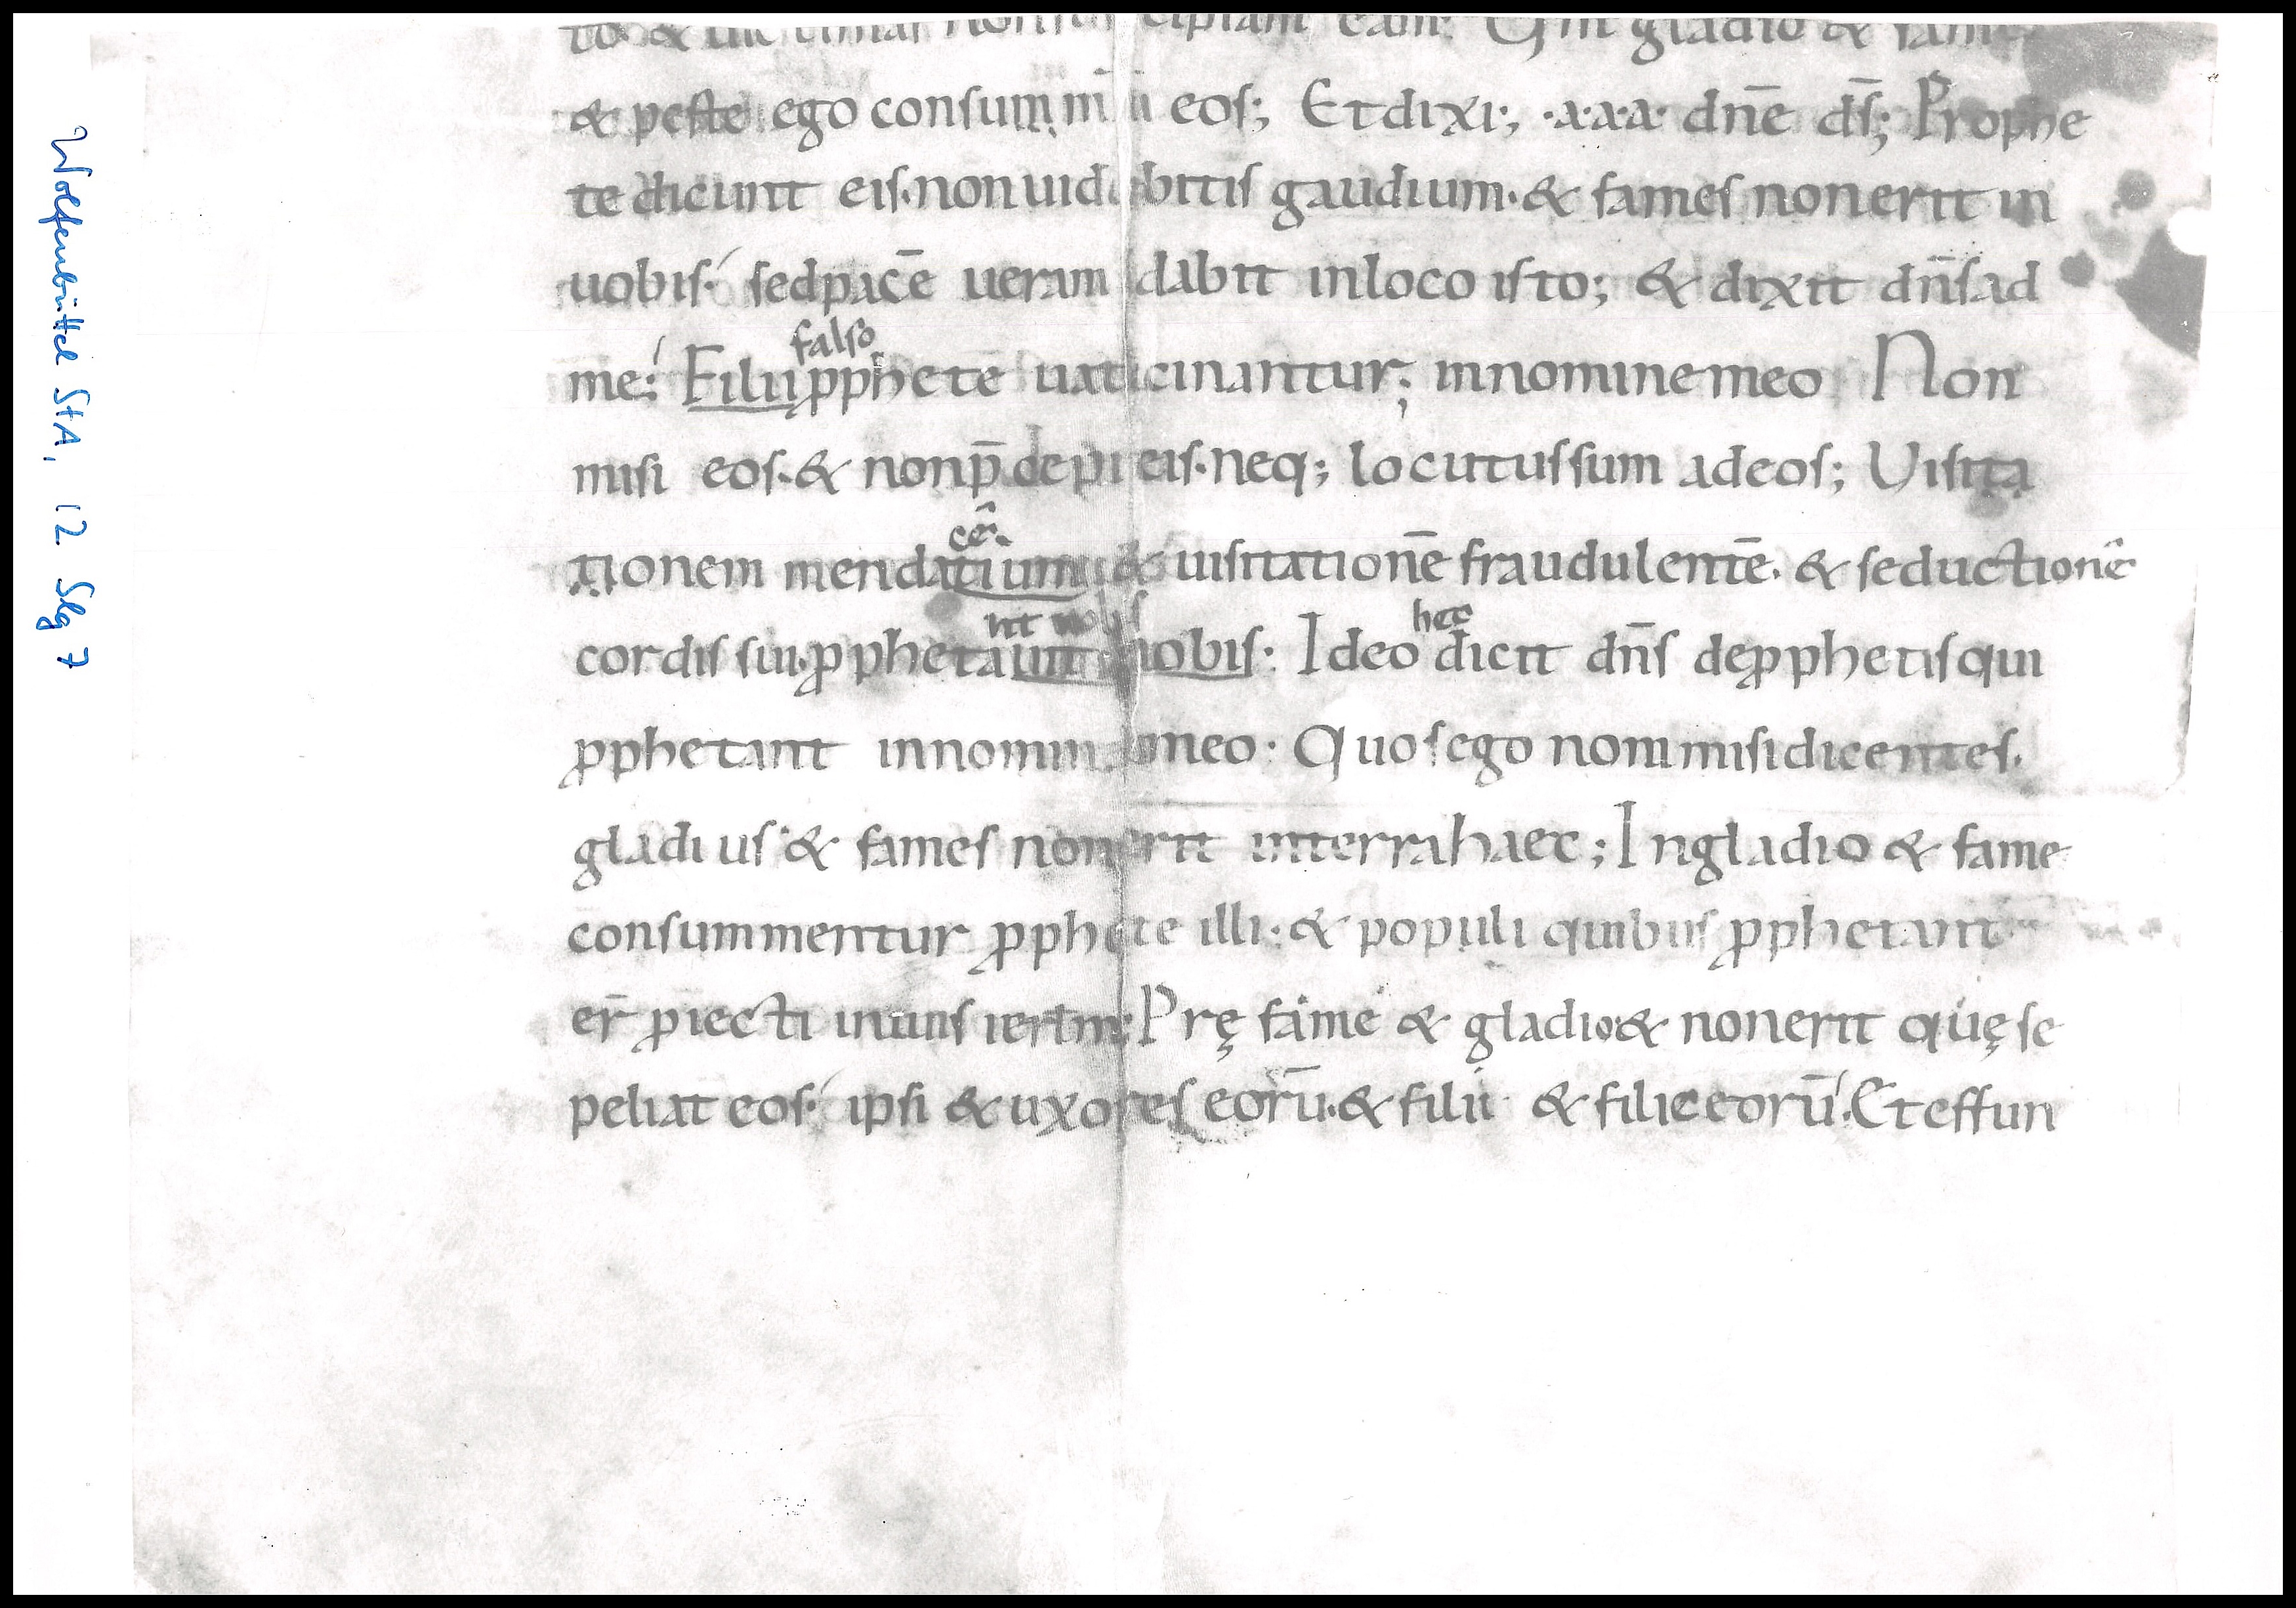 to & uictimas non suscipiam eam. Qm gladio & fame
& peste ego consummā eos; Et dixi; ·a·a·a· dn̄e ds̄; Prophe
te dicunt eis· non uidebitis gaudium· & fames non erit in
uobis· sed pacē ueram dabit in loco isto; & dixit dn̄s ad
falso
me: Filii ꝓphete uaticinantur; in nomine meo Non
misi eos· & non p̄cepi eis· neq; locutus sum ad eos; Uisita
cē·
tionem mendatium & uisitationē fraudulentē· & seductionē
nt uobis
cordis sui· ꝓphetaunt nobis· Ideo hec dicit dn̄s de ꝓphetis qui
ꝓphetant in nomine meo· Quos ego nom misi dicentes·
gladius & fames non erit in terra haec; In gladio & fame
consummentur ꝓphete illi· & populi quibus ꝓphetant
er̄ ꝓiecti in uiis ierl̄m; Prę fame & gladio & non erit quę se
peliat eos· ipsi & uxores eorū· & filii & filie eorū· Et effun
Wolfenbüttel StA, 12 Slg 7